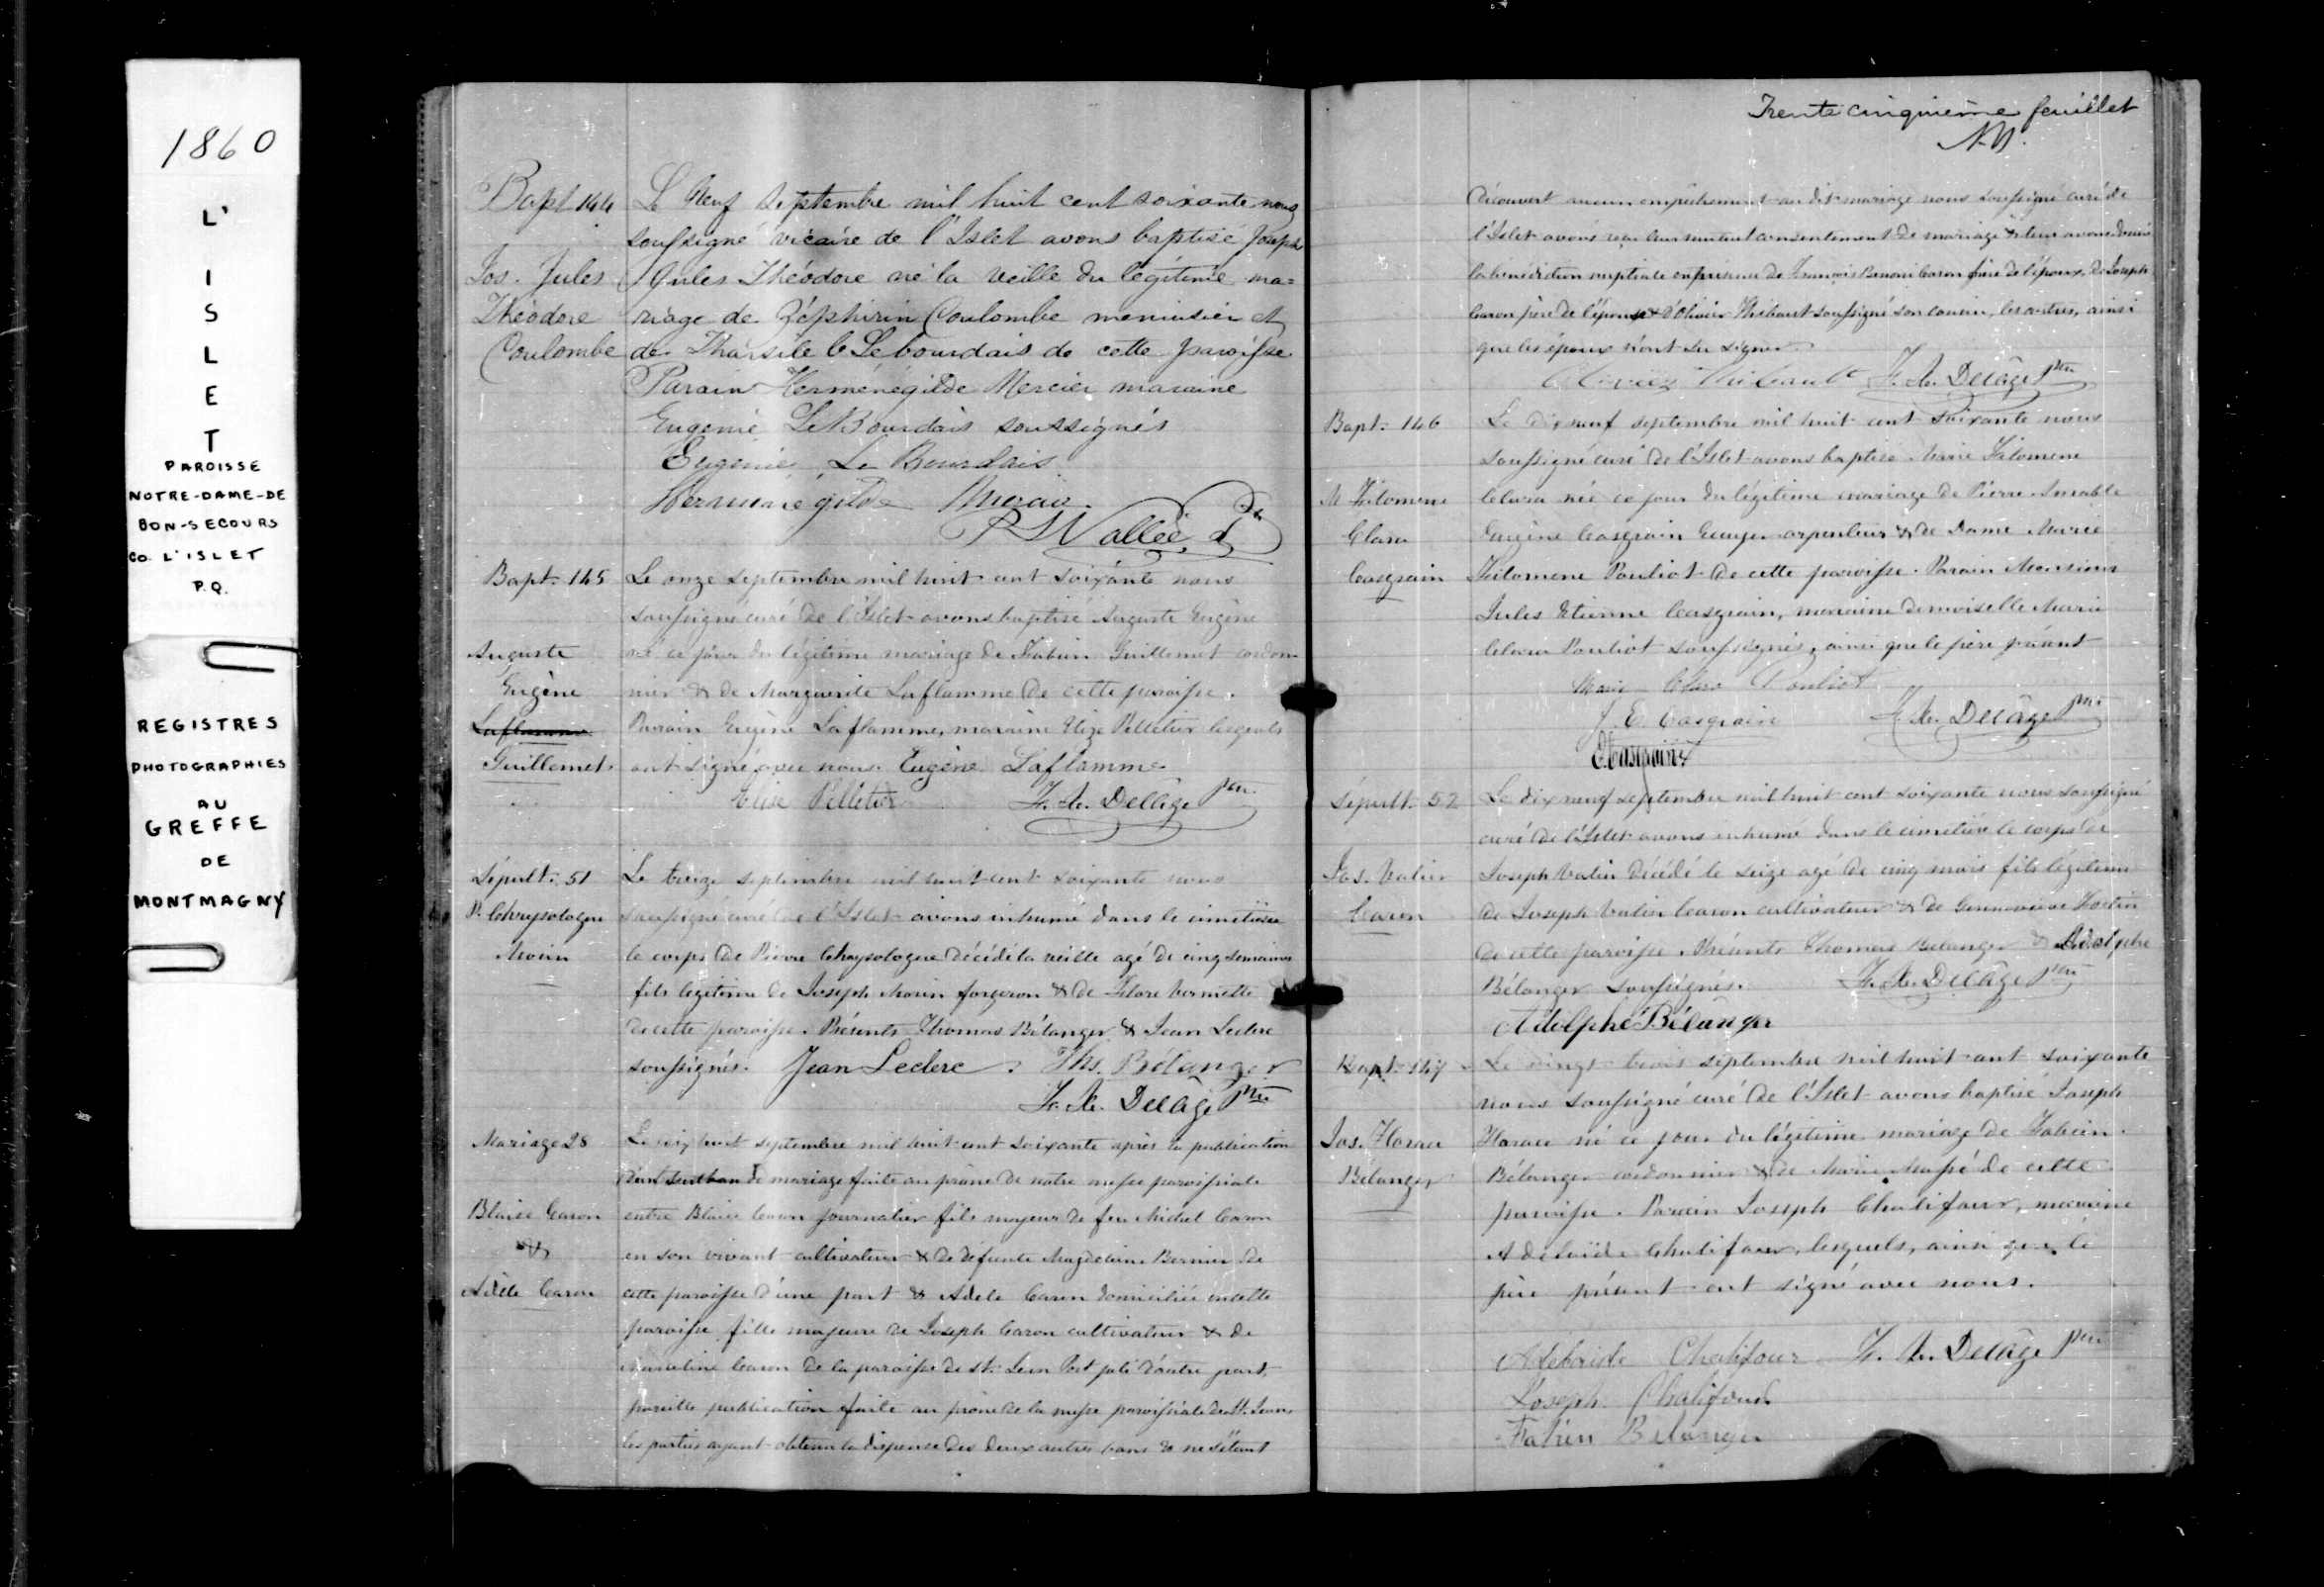 1860
L'
I
S
L
E
T
PAROISSE
NOTRE-DAME-DE
BON-SECOURS
CO. L'ISLET
P.Q.
REGISTRES
PHOTOGRAPHIES
AU
GREFFE
DE
MONTMAGNY
Bapt 144
Jos. Jules
Théodore
Coulombe
Le Neuf Septembre mil huit cent soixante nous
soussigné vicaire de l'Islet avons baptisé Joseph
Jules Théodore né la veille du légitime ma=
riage de Zéphirin Coulombe menuisier et
de Tharsile Lebourdais de cette paroisse
Parain Herménégilde Mercier maraine
Eugenie LeBourdais soussignés
Eugenie Le Bourdais
Herménégilde Mercier
Vallée
Bapt. 145
Auguste
Eugène
Laflamme
Guillemet
Le onze septembre mil huit cent soixante nous
soussigné curé de l'Islet avons baptisé Auguste Eugène
né ce jour du légitime mariage de Fabien Guillemet cordon
nier & de Marguerite Laflamme de cette paroisse.
Parain Eugène Laflamme, maraine Elize Pelletier lesquels
ont signé avec nous. Eugène Laflamme
Elise Pelletier F. X. Delâge Ptre
Sépult. 51
P. Chrysologue
Morin
Le treize septembre mil huit cent soixante nous
soussigné curé de l'Islet avons inhumé dans le cimetière
le corps de Pierre Chrysologue décédé la veille agé de cinq semaines
fils légitime de Joseph Morin forgeron & de Flore Vermette
de cette paroisse. Présents Thomas Bélanger & Jean Leclerc
soussignés. Jean Leclerc. Ths. Bélanger
F. X. Delâge Ptre
Mariage 28
Blaise Caron
&
Adèle Caron
Le dix huit septembre mil huit cent soixante après la publication
d'un seul ban de mariage faite au prône de notre messe paroissiale
entre Blaise Caron journalier fils majeur de feu Michel Caron
en son vivant cultivateur & de défunte Magdeleine Bernier de
cette paroisse d'une part & Adele Caron domiciliée en cette
paroisse fille majeure de Joseph Caron cultivateur & de
Marceline Caron de la paroisse de St. Jean Port joli d'autre part,
pareille publication faite au prône de la messe paroissiale de St. Jean
les parties ayant obtenu la dispense des deux autres bans & ne s'étant
Trente cinquième feuillet
découvert aucun empêchement au dit mariage nous soussigné curé de
l'Islet avons reçu leur mutuel consentement de mariage & leur avons donné
la bénédiction nuptiale en présence de François Benoni Caron frère de l'époux, de Joseph
Caron père de l'épouse & d'Olivier Thibault soussigné son cousin, les autres, ainsi
que les époux n'ont su signer.
Olivier Thibault F. X. Delâge Ptre
Bapt. 146
M. Filomene
Clara
Casgrain
Le dix neuf septembre mil huit cent soixante nous
soussigné curé de l'Islet avons baptisé Marie Filomene
Clara née ce jour du légitime mariage de Pierre Amable
Eugène Casgrain Ecuyer arpenteur & de Dame Marie
Filomene Pouliot de cette paroisse. Parain Monsieur
Jules Etienne Casgrain, maraine demoiselle Marie
Clara Pouliot soussignés, ainsi que le père présent
Marie Clara Pouliot
J. E. Casgrain F. X. Delâge Ptre
E. Casgrain
Sépult. 52
Jos. Valier
Caron
Le dix neuf septembre mil huit cent soixante nous soussigné
curé de l'Islet avons inhumé dans le cimetière le corps de
Joseph Valier décédé le seize agé de cinq mois fils légitime
de Joseph Valier Caron cultivateur & de Genevieve Fortin
de cette paroisse. Présents Thomas Bélanger & Adolphe
Bélanger soussignés. F. X. Delâge Ptre
Adolphe Bélanger
Bapt. 147
Jos. Horace
Bélanger
Le vingt trois septembre mil huit cent soixante
nous soussigné curé de l'Islet avons baptisé Joseph
Horace né ce jour du légitime mariage de Fabien
Bélanger cordonnier & de Marie Massé de cette
paroisse. Parain Joseph Chalifour, maraine
Adelaïde Chalifour, lesquels, ainsi que le
père présent ont signé avec nous.
Adelaïde Chalifour F. X. Delâge Ptre
Joseph Chalifour
Fabien Bélanger